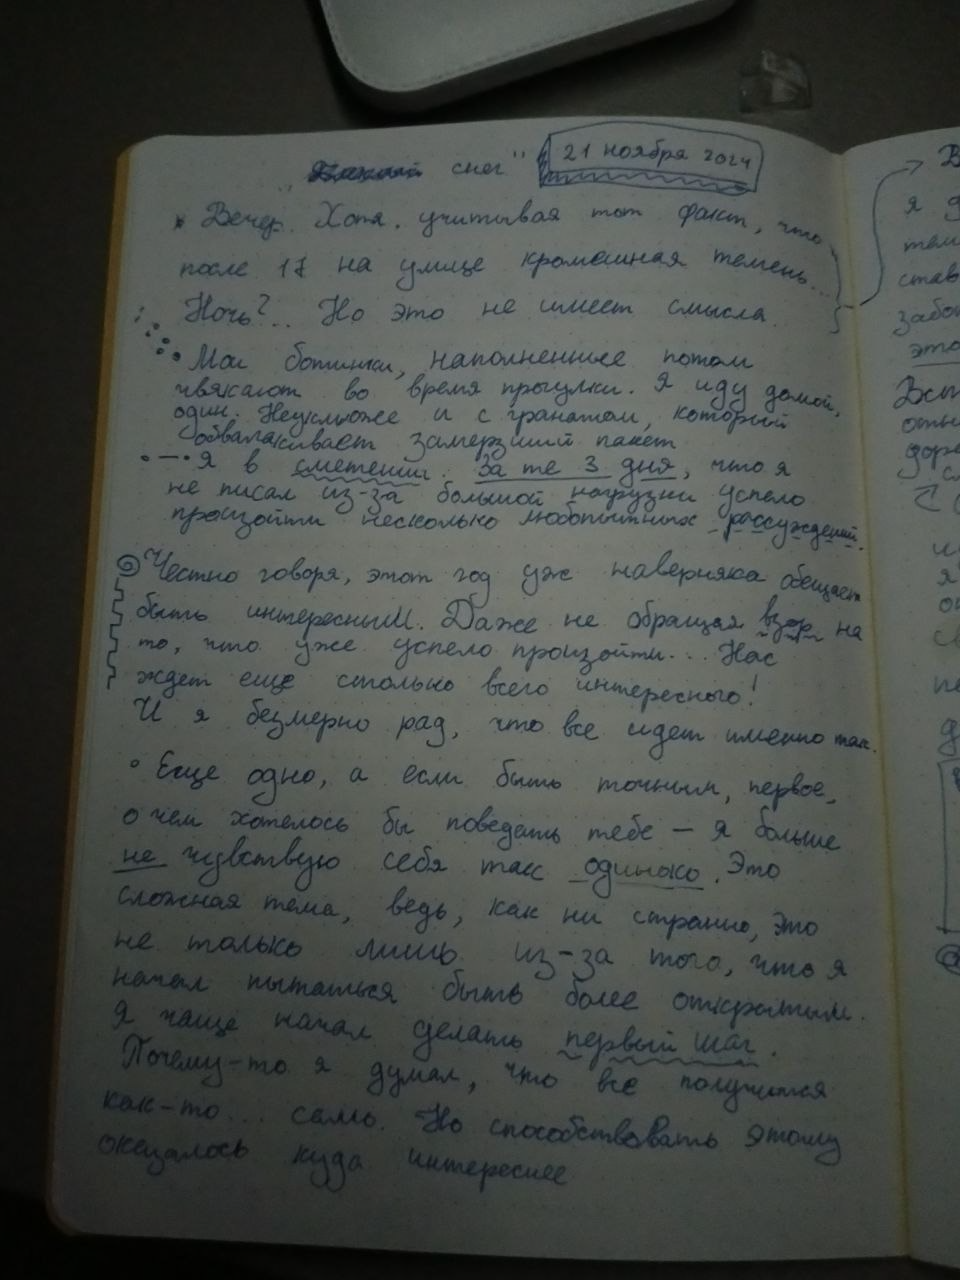 " снег" 21 ноября 2024
Вечер. Хотя, учитывая тот факт, что
после 17 на улице кромешная темень...
Ночь?... Но это не имеет смысла.
Мои ботинки, наполненные потом
чвякают во время прогулки. Я иду домой,
один. Неуклюже и с гранатом, который
обвалакивает замерзший пакет
Я в сметении. За те 3 дня, что я
не писал из-за большой нагрузки успело
произойти несколько любопытных рассуждений.
Честно говоря, этот год уж наверняка обещает
быть интересным. Даже не обращая взор на
то, что уже успело произойти... Нас
ждет еще столько всего интересного!
И я безмерно рад, что все идет именно так.
Еще одно, а если быть точным, первое,
о чем хотелось бы поведать тебе – я больше
не чувствую себя так одиноко. Это
сложная тема, ведь, как ни странно, это
не только лишь из-за того, что я
начал пытаться быть более открытым.
Я чаще начал делать первый шаг.
Почему-то я думал, что все получится
как-то... само. Но способствовать этому
оказалось куда интереснее
В
я
тем
став
забо
это